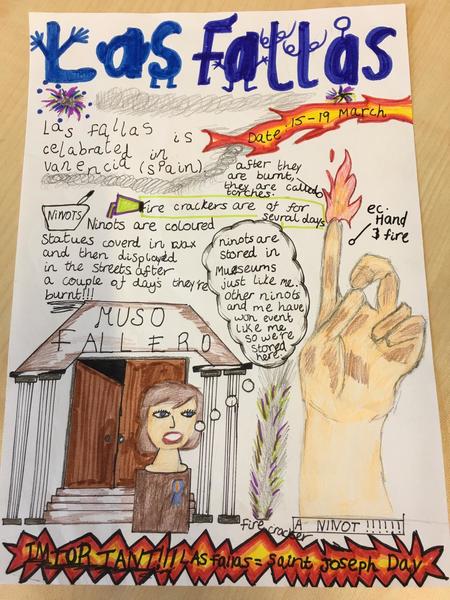 Las Fallas
Date: 15-19 March
Las fallas is
celabrated in
vanencia (spain)
after they
are burnt,
they are called
torches.
ec.
Hand
& fire
NiNOTS
fire crackers are of for
sevral days
Ninots are coloured
Statues coverd in wax
and then displayed
in the streets after
a couple of days they're
burnt!!!
ninots are
stored in
Mueseums
just like me.
other ninots
and me have
won event
like me
so we're
stored
here.
MUSO
FALLERO
fire cracker
A NINOT !!!!!!
IMTORTANT!!! LAS fallas = saint joseph Day